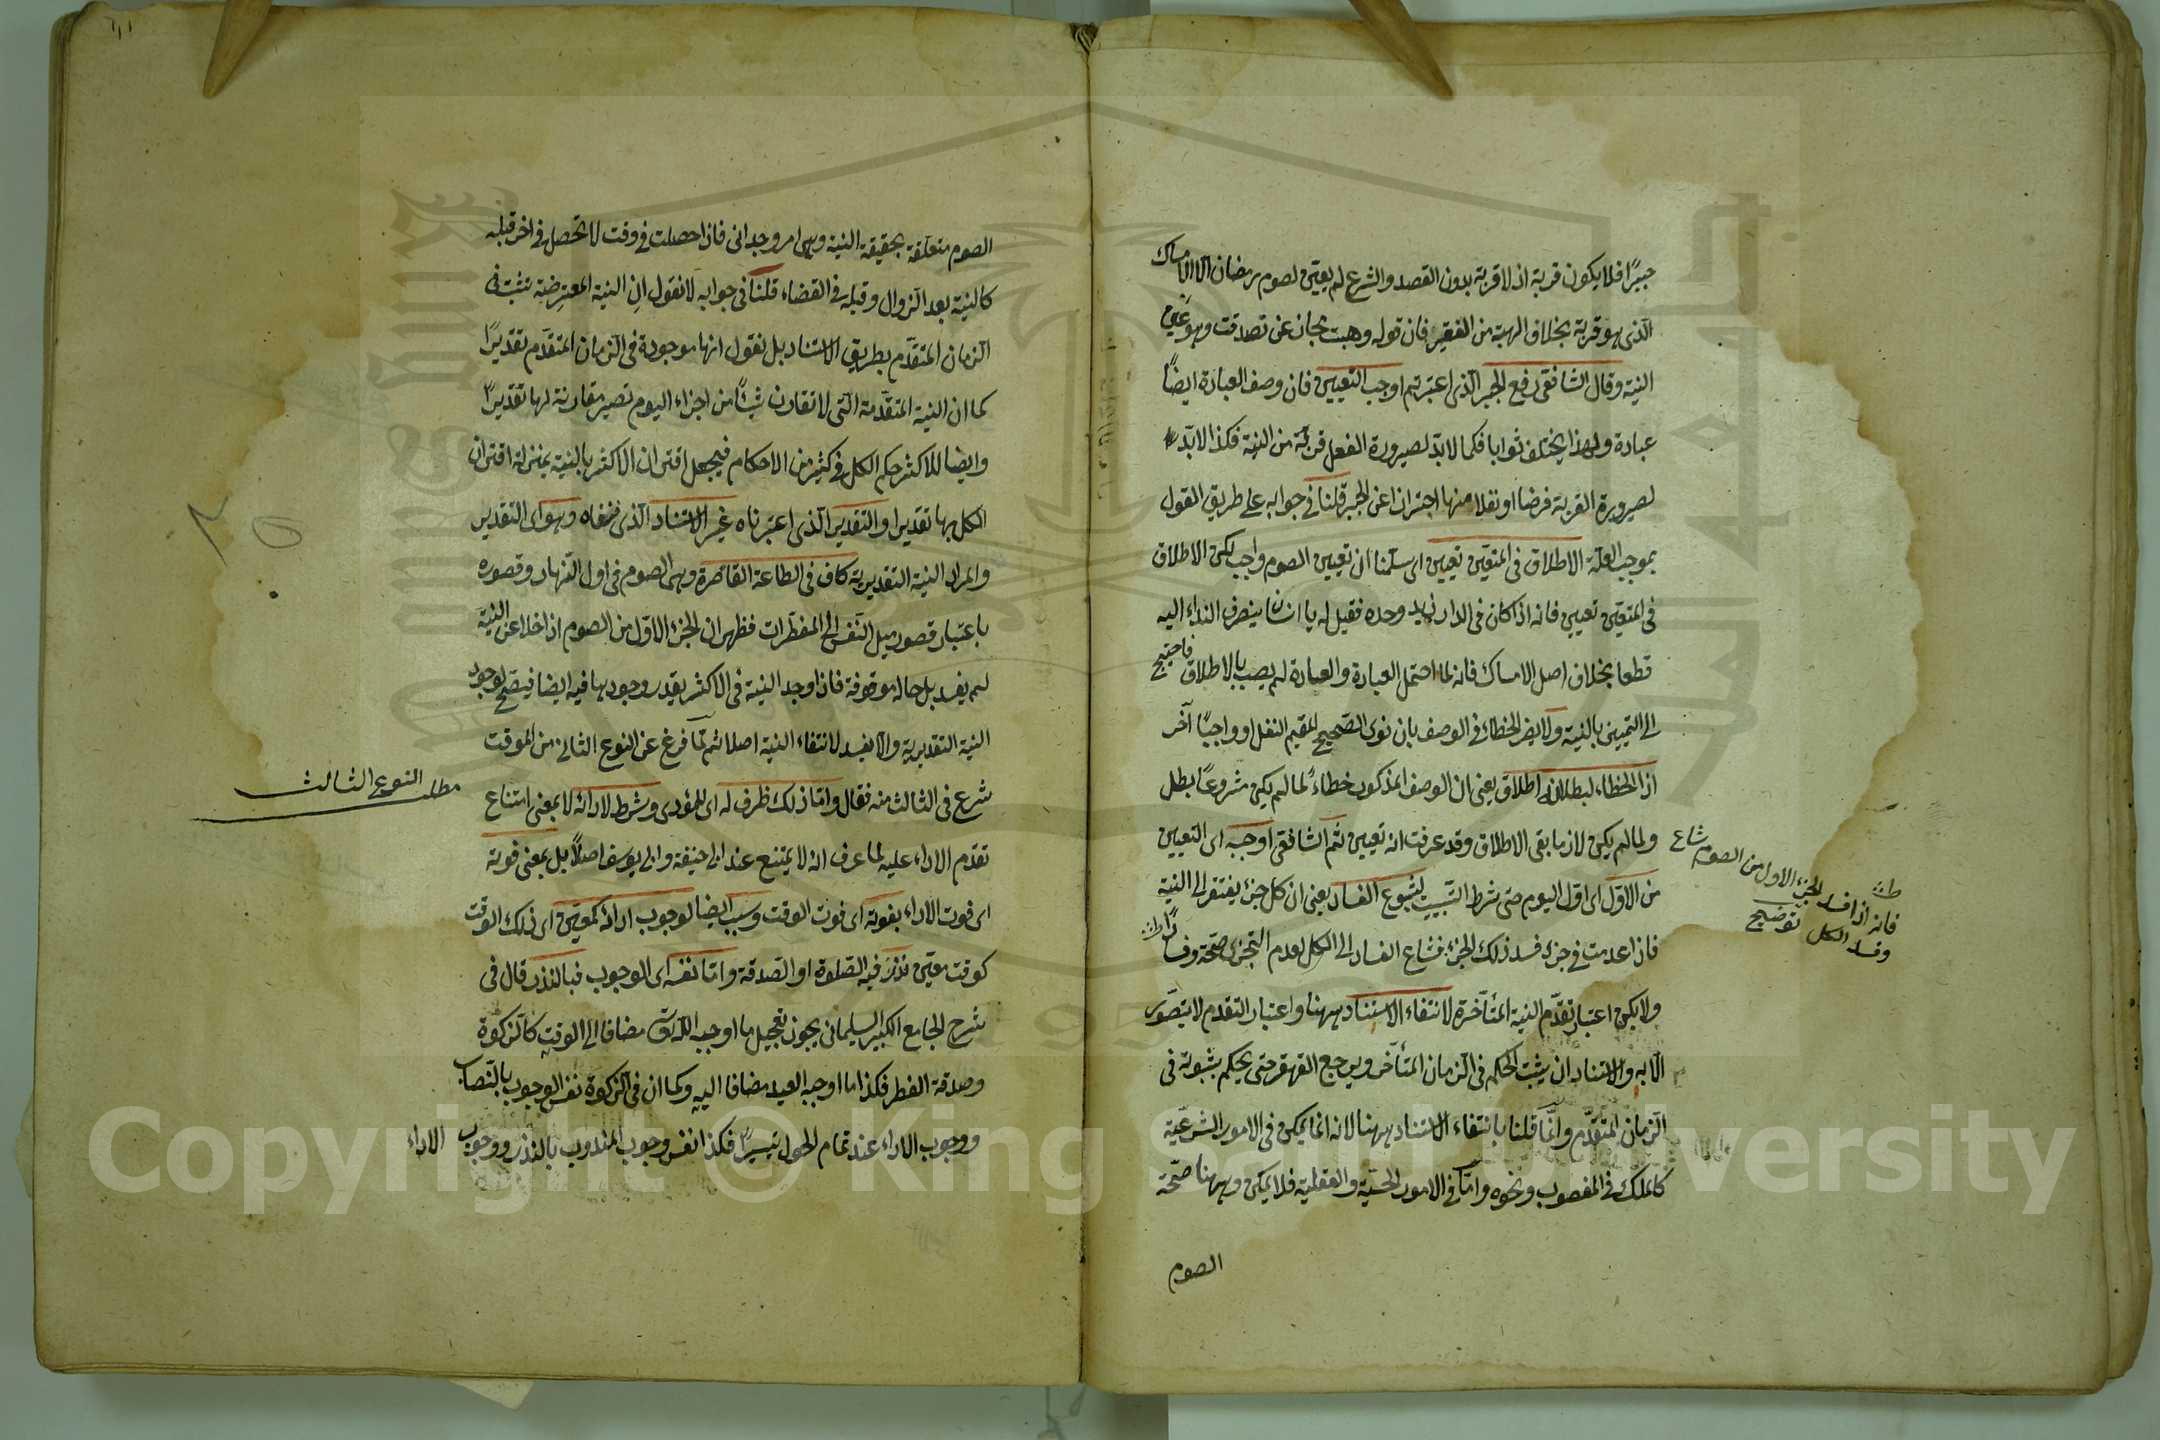 جبرًا فلا يكون قربة اذ لا قربة بدون القصد والشرع لم يعين لصوم رمضان الا الامساك
الذى هو قربة بخلاف الهبة من الفقير فان قوله وهبت مجاز عن تصدقت وهو عين
النية وقال الشافعى رفع الجبر الذى اعتبرتم اوجب التعيين فان وصف العبادة ايضًا
عبادة ولهذا يختلف ثوابا فكما لابد لصيرورة الفعل قربة من النية فكذا لابد
لصيرورة القربة فرضا او نفلا منها احترازا عن الجبر قلنا فى جوابه على طريق القول
بموجب العلة الاطلاق فى المتعين تعيين اى سلمنا ان تعيين الصوم واجب لكن الاطلاق
فى المتعين تعيين فانه اذا كان فى الدار زيد وحده فقيل له يا انسان ينصرف النداء اليه
قطعا بخلاف اصل الامساك فانه لما احتمل العبادة والعادة لم يصب بالاطلاق فاحتيج
الى التميين بالنية ولا يضر الخطاء فى الوصف بان نوى الصحيح المقيم النفل او واجبًا آخر
اذ الخطاء لبطلانه اطلاق يعنى ان الوصف المذكور خطاءً لما لم يكن مشروعًا بطل
ولما لم يكن لازما بقى الاطلاق وقد عرفت انه تعيين ثم الشافعى اوجبه اى التعيين
من الاول اى اول اليوم حتى شرط التبييت لشيوع الفساد يعنى ان كل جزء يفتقر الى النية
فاذا عدمت فى جزء فسد ذلك الجزء فشاع الفساد الى الكل لعدم التجزى صحة وفسادًا
ولا يكن اعتبار تقدم النية المتأخرة لانتفاء الاستناد ههنا واعتبار التقدم لا يتصور
الا به والاستناد ان يثبت الحكم فى الزمان المتأخر ويرجع القهقرى حتى يحكم بثبوته فى
الزمان المتقدم وانما قلنا بانتفاء الاستناد ههنا لانه انما يمكن فى الامور الشرعية
كالملك فى المغصوب ونحوه واما فى الامور الحسية والعقلية فلا يمكن وههنا صحة
الصوم
فانه اذا فسد الجزء الاول من الصوم شاع
وفسد الكل توضيح
الصوم متعلقة بحقيقة النية وهى امر وجدانى فاذا حصلت فى وقت لا تحصل فى اخر قبله
كالنية بعد الزوال وقبله فى القضاء قلنا فى جوابه لا نقول ان النية المعترضة تثبت فى
الزمان المتقدم بطريق الاستناد بل نقول انها موجودة فى الزمان المتقدم تقديرًا
كما ان النية المتقدمة التى لا تقارن شيئًا من اجزاء اليوم تصير مقارنة لها تقديرًا
وايضا للاكثر حكم الكل فى كثير من الاحكام فيجعل اقتران الاكثر بالنية بمنزلة اقتران
الكل بها تقديرا والتقدير الذى اعتبرناه غير الاستناد الذى نفاه وهو اى التقدير
والمراد النية التقديرية كاف فى الطاعة القاصرة وهى الصوم فى اول النهار وقصوره
باعتبار قصور ميل النفس الى المفطرات فظهر ان الجزء الاول من الصوم اذا خلا عن النية
لم يفسد بل حاله موقوفة فاذا وجد النية فى الاكثر يقدر وجودها فيه ايضا فيصح لوجود
النية التقديرية والا يفسد لانتفاء النية اصلا ثم لما فرغ عن النوع الثانى من الموقت
شرع فى الثالث منه فقال واما ذلك ظرف له اى للمؤدى وشرط لادائه لا بمعنى امتناع
تقدم الاداء عليه لما عرف انه لا يمتنع عند ابى حنيفة وابى يوسف اصلًا بل بمعنى فوته
اى فوت الاداء بفوته اى فوت الوقت وسبب ايضا لوجوب ادائه كمعين اى ذلك الوقت
كوقت معين نذر فيه الصلوة او الصدقة واما نفسه اى الوجوب فبالنذر قال فى
شرح الجامع الكبير السليمانى يجوز تعجيل ما اوجبه الله تعالى مضافا الى الوقت كالزكوة
وصدقة الفطر فكذا ما اوجبه العبد مضافا اليه وكما ان فى الزكوة نفس الوجوب بالنصاب
ووجوب الاداء عند تمام الحول تيسيرًا فكذا نفس وجوب المندوب بالنذر ووجوب الاداء
مطلب النوع الثالث
Copyright © King Saud University